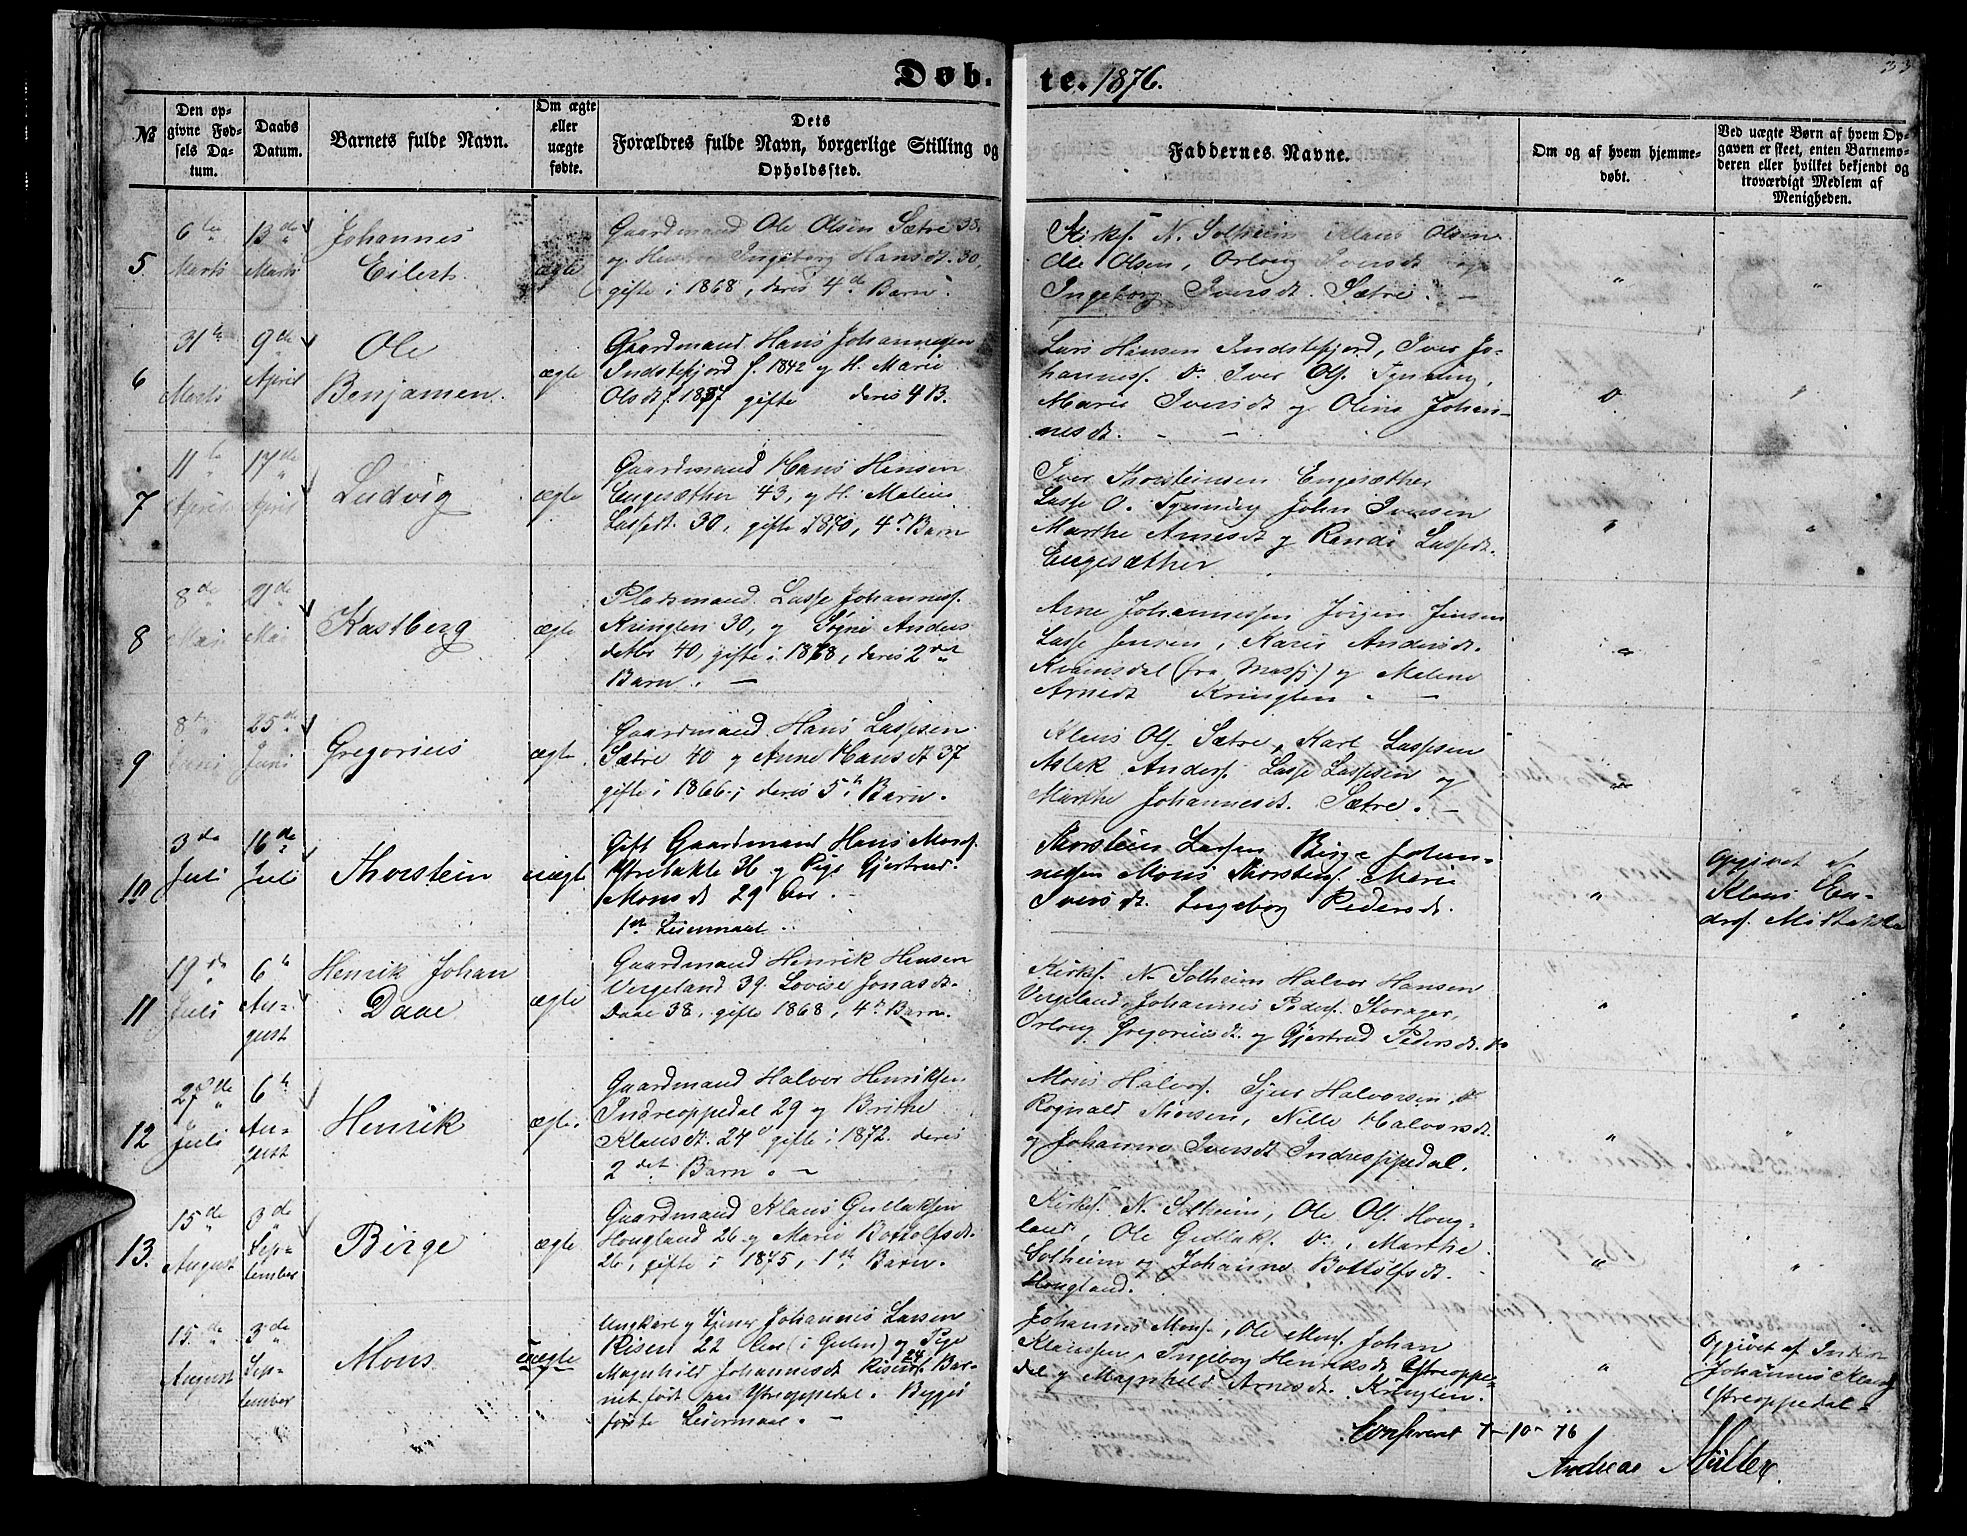 Døb.
te. 1876.
33
№
Den op-
givne Fød-
sels Da-
tum.
Daabs
Datum.
Barnets fulde Navn.
Om ægte
eller
uægte
fødte.
Dets
Forældres fulde Navn, borgerlige Stilling og
Opholdssted.
Faddernes Navne.
Om og af hvem hjemme-
døbt.
Ved uægte Børn af hvem Op-
gaven er skeet, enten Barnemo-
deren eller hvilket bekjendt og
troværdigt Medlem af
Menigheden.
5
6te
Marts
13de
Marts
Johannes
Eilert
ægte
Gaardmand Ole Olsen Sætre 38
og Hustru Ingeborg Hansdt. 30
gifte i 1868, deres 4de Barn.
Kirkes. N. Solheim Klaus Olsen
Ole Olsen, Orloug Iversdt og
Ingeborg Iversdt. Sætre. -
"
"
6
31te
Marts
9de
April
Ole
Benjamen
ægte
Gaardmand Hans Johannesen
Indstefjord f. 1842 og H. Marie
Olsdt f. 1837 gifte deres 4 B.
Lars Hansen Indstefjord, Iver Jo-
hanness. Do. Iver Ols. Tynning,
Marie Iversdt og Olina Johan-
nesdt. - -
"
"
7
11te
April
17de
April
Ludvig
ægte
Gaardmand Hans Hensen
Engesæther 43, og H. Malene
Lassedt. 30, gifte 1870, 4de Barn
Iver Thorsteinsen Engesæther
Lasse O. Tynning John Iversen
Marthe Arnesdt og Randi Lassedt.
Engesæther
"
"
8
8de
Mai
21de
Mai
Kastberg
ægte
Pladsmand Lasse Johanness.
Kringlen 30, og Sygni Anders
datter 40, gifte i 1868, deres 2det
Barn. -
Arne Johannessen Jørgen Jensen
Lasse Jensen, Kari Andersdt.
Kvamsdal (fra Masfj) og Malene
Arnedt Kringlen -
"
9
8de
Juni
25de
Juni
Gregorius
ægte.
Gaardmand Hans Lassesen
Sætre 40 og Anne Hansdt 37
gifte i 1866, deres 5te Barn.
Klaus Ols. Sætre, Karl Lassesen
Aslak Anders. Lasse Lassesen og
Marthe Johannesdt. Sætre. -
"
10
3de
Juli
16de
Juli
Thorstein
uægte
Gift Gaardmand Hans Mons.
Ytretakle 36 og Pige Gjertrud
Monsdt 29 Aar. -
1ste Leiermaal.
Thorstein Lassen Birge Johan-
nesen Mons Thorstens. Marie
Iversdt. Ingeborg Pedersdt.
"
Opgivet af
Klaus En-
drs. Midtakle
11
19de
Juli
6te
Au-
gust
Henrik Johan
Daae
ægte
Gaardmand Henrik Hensen
Vergeland 39. Lovise Jonasdt.
Daae 38, gifte 1868, 4de Barn.
Kirkes. N. Solheim Halvor Hansen
Vergeland, Johannes Peders. Storager,
Orloug Gregoriusdt. og Gjertrud Pedersdt. Do
"
"
12
27de
Juli
6te
Au-
gust
Henrik
ægte.
Gaardmand Halvor Henriksen
Indreoppedal 29 og Brithe
Klausdt. 24 gifte i 1872. deres
2det Barn. -
Mons Halvors. Sjur Halvorsen,
Rognald Thorsen, Nille Halvorsdt.
og Johanne Iversdt Indreoppedal.
"
"
13.
15de
August
3de
Sep-
tember
Birge
ægte
Gaardmand Klaus Gullaksen
Hougland 26 og Marie Bottolfsdt.
26, gifte i 1875, 1ste Barn.
Kirkes. N. Solheim, Ole Ols. Houg-
land, Ole Gullaks. Do., Marthe
Solheim og Johanne Bottolfsdt.
Hougland.
"
"
15de
August
3de
Sep-
tember
Mons
uægte
Ungkarl og tjener Johannes Larsen
Risen 22 Aar (i Gulen) og Pige
Magnhild Johannesdt Risen 24 Bar-
net født paa Ytreoppedal. Begges
første Leiermaal. -
Johannes Mons., Ole Mons. Johan
Klaussen, Ingeborg Henriksdt Ytreoppe-
dal og Magnhild Arnesdt. Kringlen.
"
Opgivet af
Johannes Klaus
Ytreoppedal.
Conferert 7-10-76
Andreas Müller.